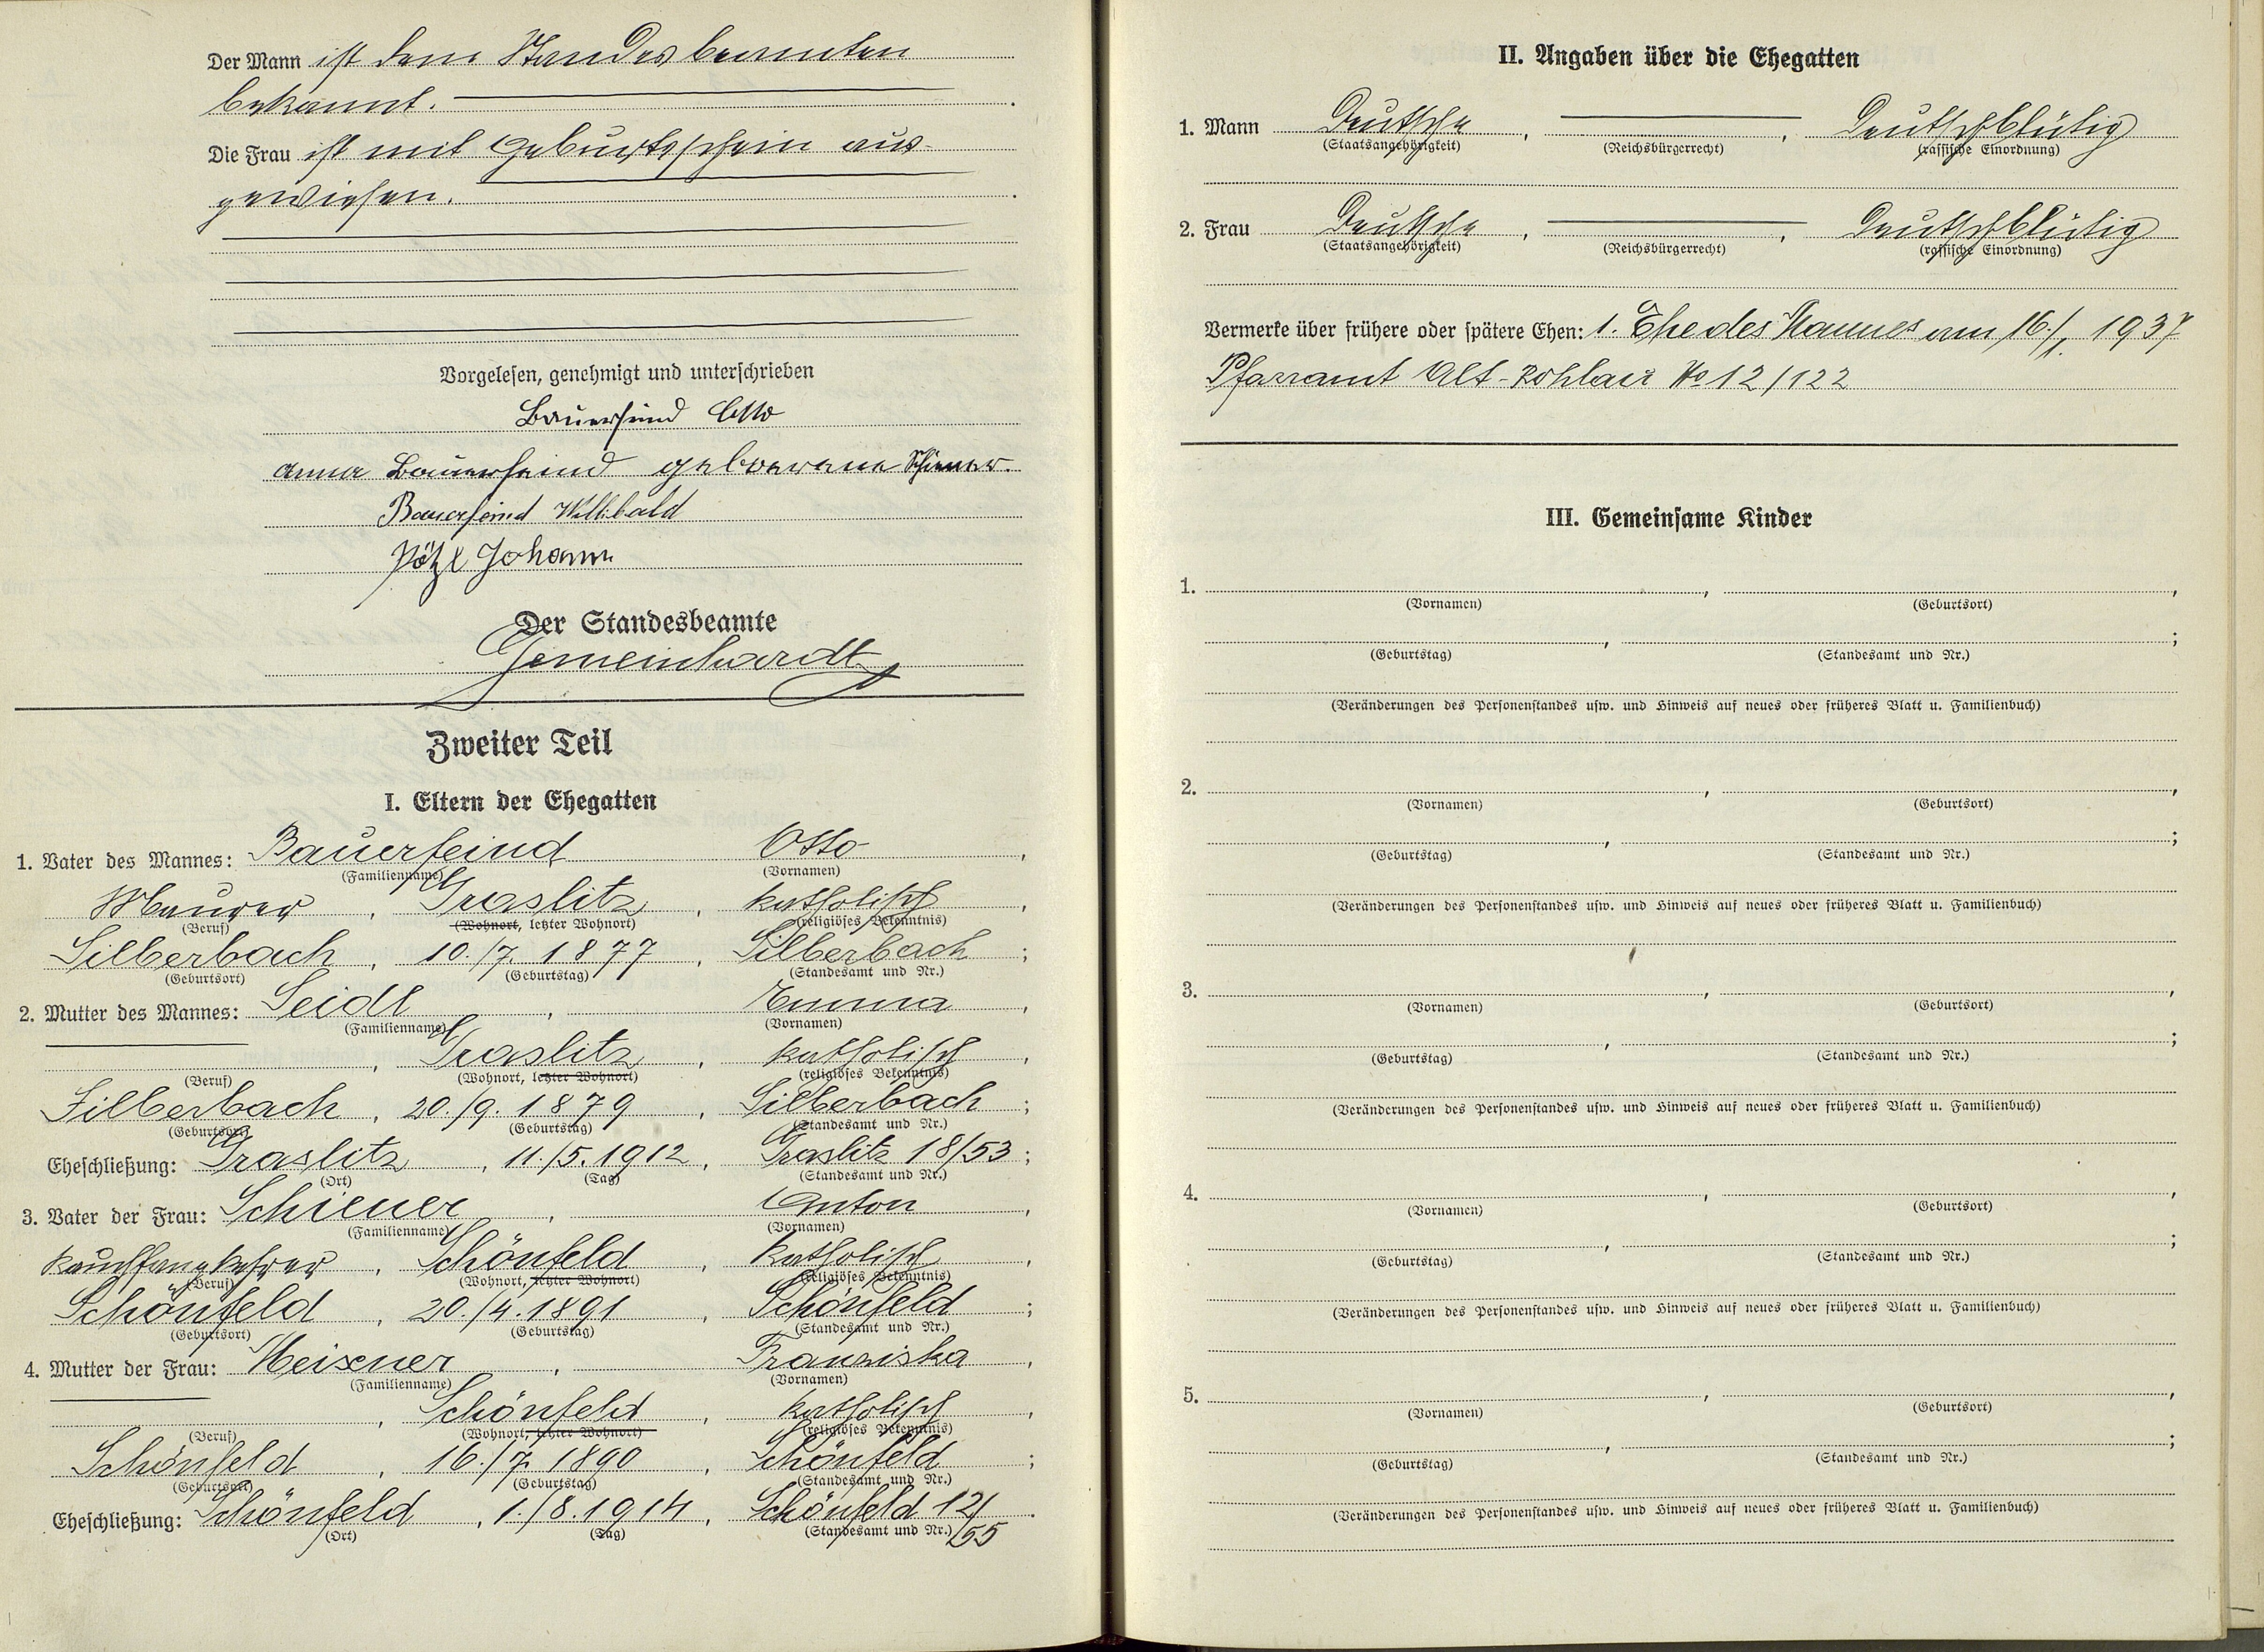 Der Mann ist dem Standesbeamten
bekannt.
Die Frau ist mit Geburtsschein aus-
gewiesen.
Vorgelesen, genehmigt und unterschrieben
Bauerfeind Otto
Anna Bauerfeind geborene Schiener.
Bauerfeind Willibald
Pötzl Johann
Der Standesbeamte
Gemeinhardt
Zweiter Teil
I. Eltern der Ehegatten
1. Vater des Mannes: Bauerfeind Otto,
(Familienname) (Vornamen)
Maurer, Graslitz, katholisch,
(Beruf) (Wohnort, letzter Wohnort) (religiöses Bekenntnis)
Silberbach, 10./7. 1877, Silberbach;
(Geburtsort) (Geburtstag) (Standesamt und Nr.)
2. Mutter des Mannes: Seidl, Emma,
(Familienname) (Vornamen)
, Graslitz, katholisch,
(Beruf) (Wohnort, letzter Wohnort) (religiöses Bekenntnis)
Silberbach, 20./9. 1879, Silberbach;
(Geburtsort) (Geburtstag) (Standesamt und Nr.)
Eheschließung: Graslitz, 11./5. 1912, Graslitz 18/53;
(Ort) (Tag) (Standesamt und Nr.)
3. Vater der Frau: Schiener, Anton,
(Familienname) (Vornamen)
Rauchfangkehrer, Schönfeld, katholisch,
(Beruf) (Wohnort, letzter Wohnort) (religiöses Bekenntnis)
Schönfeld, 20./4. 1891, Schönfeld;
(Geburtsort) (Geburtstag) (Standesamt und Nr.)
4. Mutter der Frau: Meixner, Franziska,
(Familienname) (Vornamen)
, Schönfeld, katholisch,
(Beruf) (Wohnort, letzter Wohnort) (religiöses Bekenntnis)
Schönfeld, 16./7. 1890, Schönfeld;
(Geburtsort) (Geburtstag) (Standesamt und Nr.)
Eheschließung: Schönfeld, 1./8. 1914, Schönfeld 12/55.
(Ort) (Tag) (Standesamt und Nr.)
II. Angaben über die Ehegatten
1. Mann Deutsche, , Deutschblütig
(Staatsangehörigkeit) (Reichsbürgerrecht) (rassische Einordnung)
2. Frau Deutsche, , Deutschblütig
(Staatsangehörigkeit) (Reichsbürgerrecht) (rassische Einordnung)
Vermerke über frühere oder spätere Ehen: 1. Ehe des Mannes am 16./1. 1937
Pfarramt Alt-Rohlau No 12/122
III. Gemeinsame Kinder
1. , ,
(Vornamen) (Geburtsort)
, ;
(Geburtstag) (Standesamt und Nr.)
(Veränderungen des Personenstandes usw. und Hinweis auf neues oder früheres Blatt u. Familienbuch)
2. , ,
(Vornamen) (Geburtsort)
, ;
(Geburtstag) (Standesamt und Nr.)
(Veränderungen des Personenstandes usw. und Hinweis auf neues oder früheres Blatt u. Familienbuch)
3. , ,
(Vornamen) (Geburtsort)
, ;
(Geburtstag) (Standesamt und Nr.)
(Veränderungen des Personenstandes usw. und Hinweis auf neues oder früheres Blatt u. Familienbuch)
4. , ,
(Vornamen) (Geburtsort)
, ;
(Geburtstag) (Standesamt und Nr.)
(Veränderungen des Personenstandes usw. und Hinweis auf neues oder früheres Blatt u. Familienbuch)
5. , ,
(Vornamen) (Geburtsort)
, ;
(Geburtstag) (Standesamt und Nr.)
(Veränderungen des Personenstandes usw. und Hinweis auf neues oder früheres Blatt u. Familienbuch)